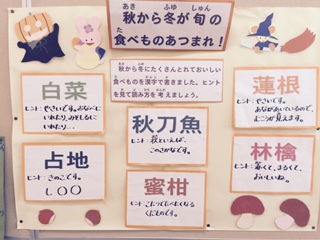 秋から冬が旬の
食べものあつまれ！
秋から冬にたくさんとれておいしい
食べものを漢字で書きました。ヒント
を見て読み方を考えましょう。
白菜
ヒント：やさいです。おなべに
いれたり、みそしるに
いれたり...
占地
ヒント：きのこです。
し〇〇
秋刀魚
ヒント：秋といえば、
このさかなです。
蜜柑
ヒント：こたつでたべたくなる
くだものです。
蓮根
ヒント：やさいです。
あながあいているので、
むこうが見えます。
林檎
ヒント：赤くて、まるくて、
おいしいね。